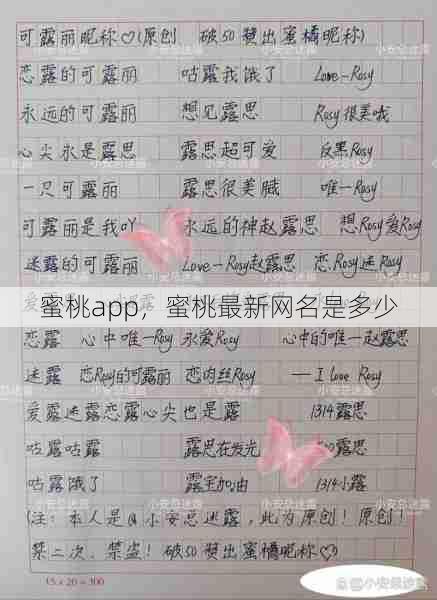 可露丽昵称♡(原创 破50赞出蜜橘昵称)
恋露的可露丽 咕露我饿了 Love-Rosy
永远的可露丽 想见露思 Rosy很美哦
心尖永是露思 露思超可爱 反黑Rosy
一只可露丽 露思很美腻 唯一Rosy
可露丽是我吖 永远的神赵露思 想Rosy爱Rosy
迷露的可露丽 Love-Rosy赵露思 恋Rosy迷Rosy
蜜桃app，蜜桃最新网名是多少
恋露 心中唯一Rosy 永爱Rosy 心中的唯一赵露思
迷露 恋Rosy的可露丽 恋肉丝Rosy —I love Rosy
爱露迷露恋露心尖也是露 1314露思
咕露咕露 露思在发光 露思
咕露饿了 露宝加油 1314小露
(注：本人是@小安总迷露，此为原创！原创！
禁二次、禁盗！破50赞出蜜橘昵称♡)
15×20=300
小安总迷露